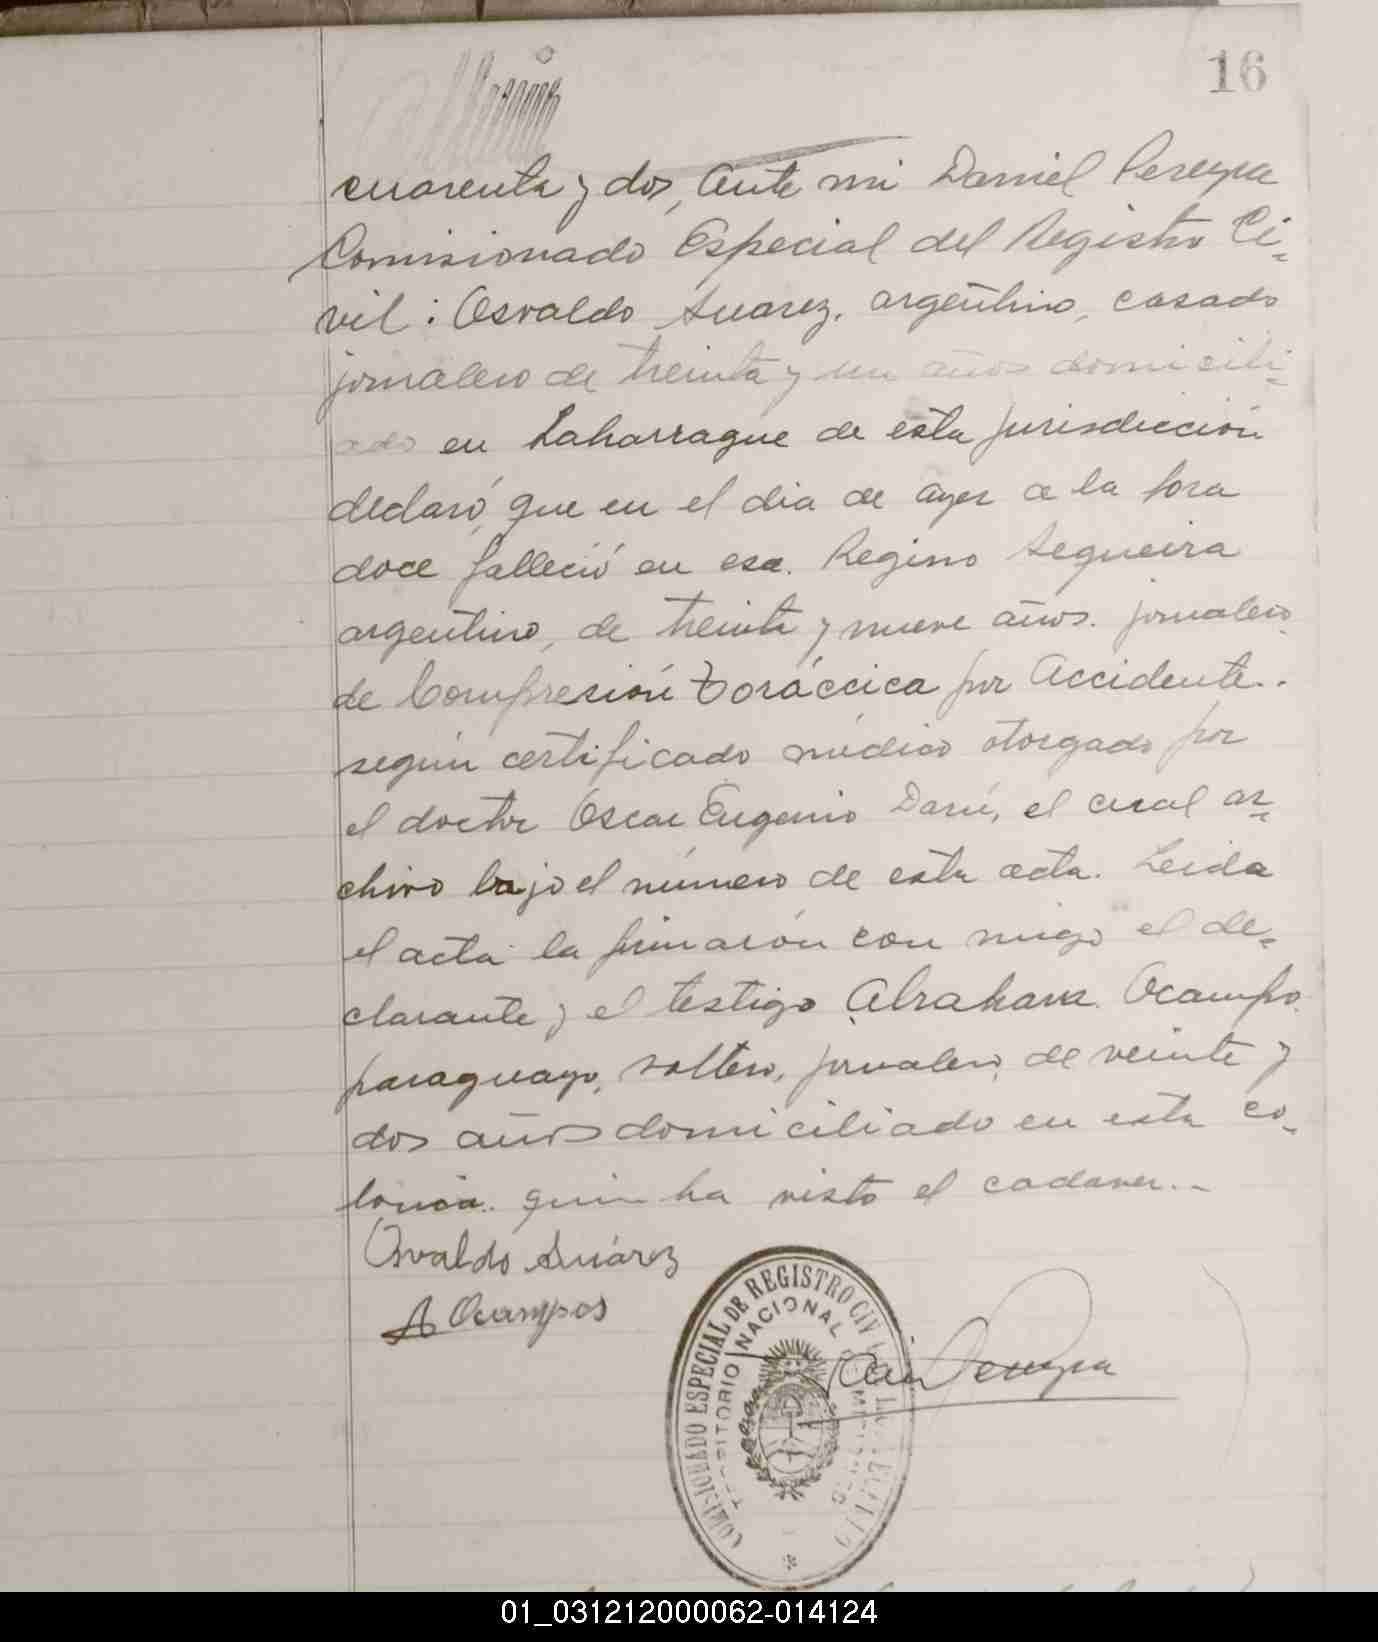 16
cuarenta y dos, Ante mi Daniel Pereyra
Comisionado Especial del Registro Ci-
vil: Osvaldo Suarez, argentino, casado
jornalero de treinta y un años domicili-
ado en Laharrague de esta jurisdicción
declaró, que en el dia de ayer a la hora
doce falleció en esa. Regino Sequeira
argentino, de treinta y nueve años. jornalero
de Compresión Toráccica por Accidente..
según certificado médico otorgado por
el doctor Oscar Eugenio Darú, el cual ar-
chivo bajo el número de esta acta. Leida
el acta la firmarón con migo el de-
clarante y el testigo Abraham Ocampo.
paraguayo, soltero, jornalero, de veinte y
dos años domiciliado en esta co-
lonia. quien ha visto el cadaver..-
Osvaldo Suárez
A Ocampos
COMISIONADO ESPECIAL DE REGISTRO CIVIL
TERRITORIO NACIONAL DE MISIONES
Pereyra
01_031212000062-014124